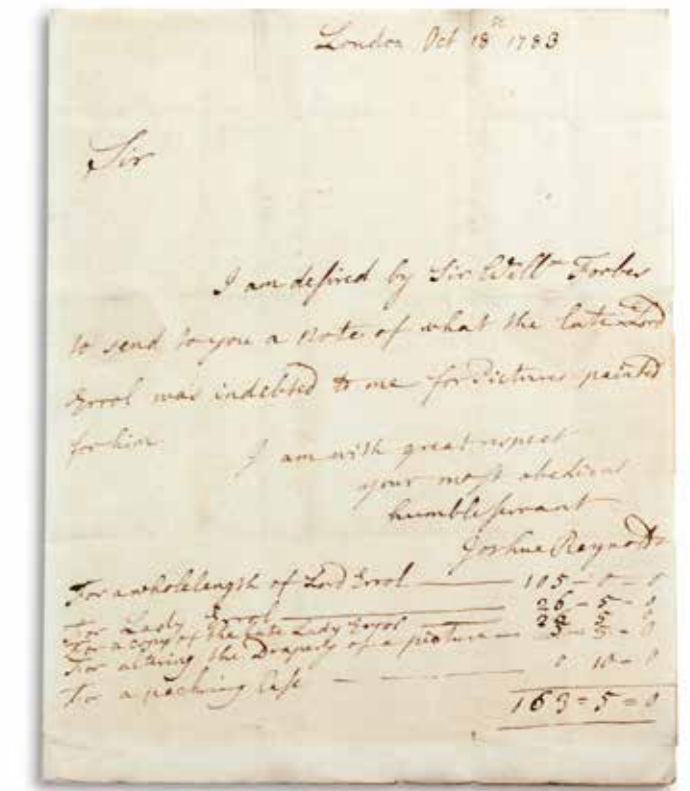 London Oct 18th 1783
Sir
I am desired by Sir Willm Forbes
to send to you a note of what the late Lord
Errol was indebted to me for Pictures painted
for him
I am with great respect
your most obedient
humble servant
Joshua Reynolds
For a whole length of Lord Errol — 105 - 0 - 0
For Lady Errol — 26 - 5 - 0
For a copy of the late Lady Errol — 5 0
For altering the Drapery of a picture — 5 - 5 - 0
For a packing Case — 0 10 - 0
163 = 5 = 0